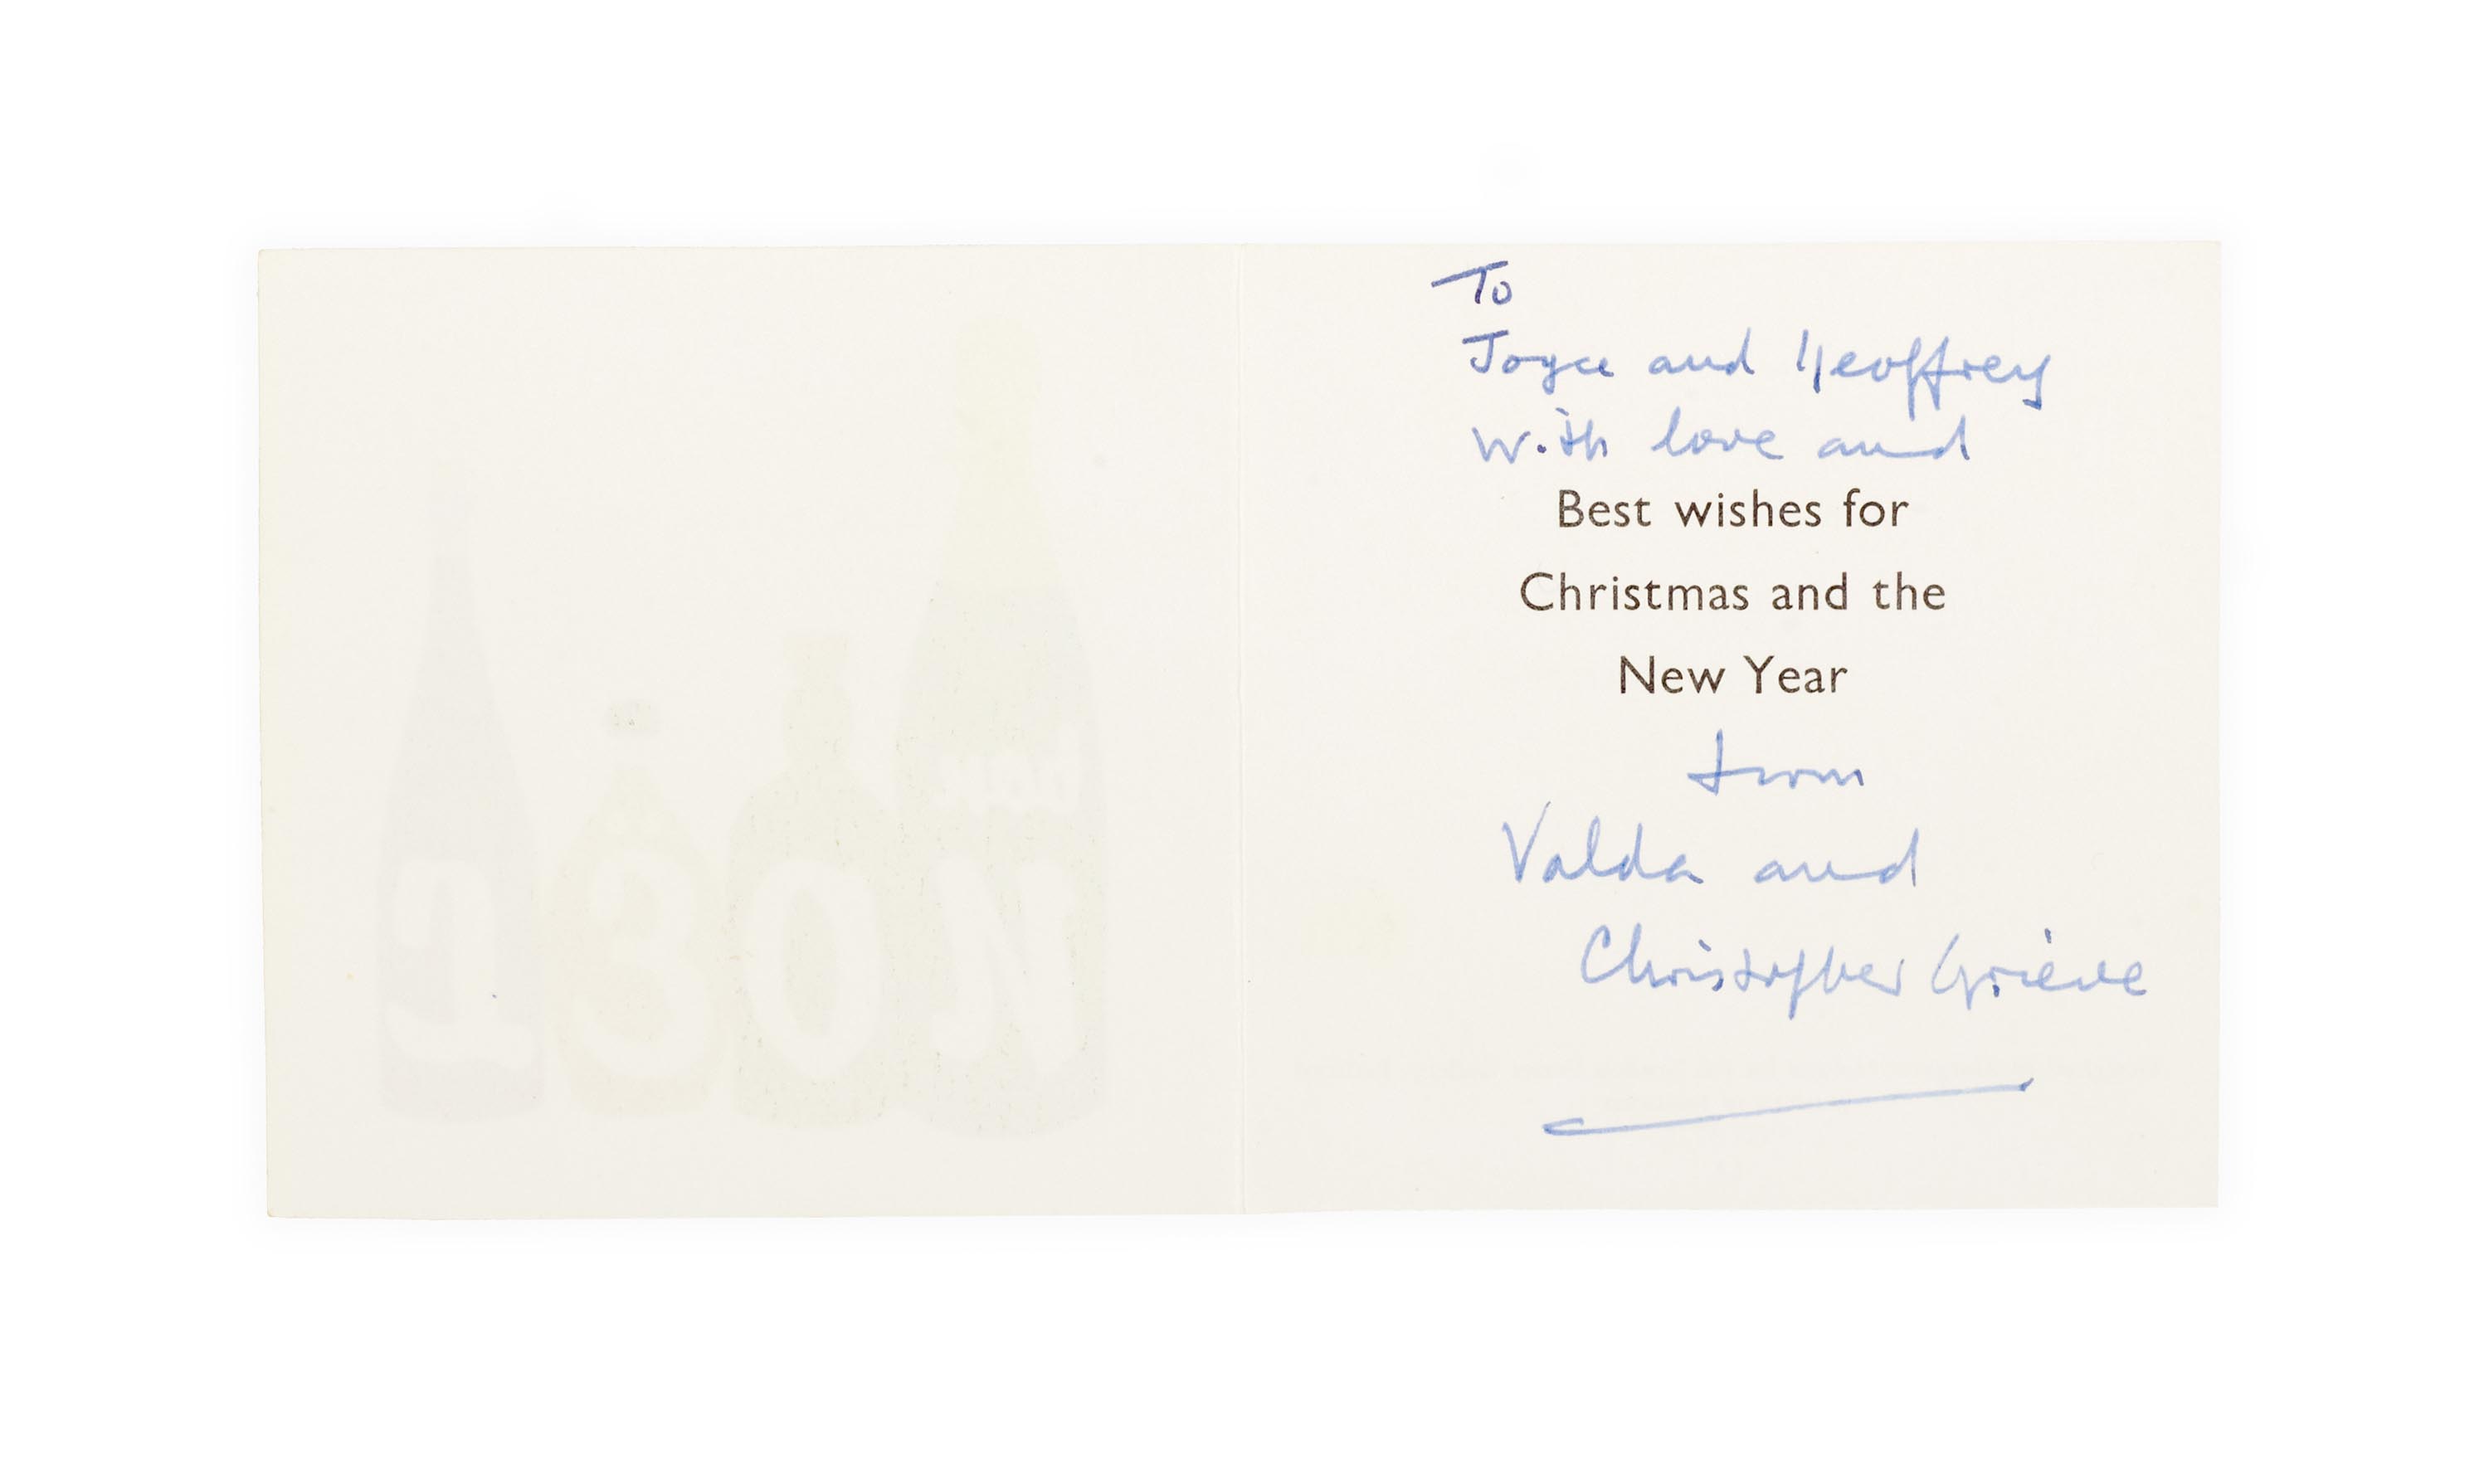 To
Joyce and Geoffrey
With love and
Best wishes for
Christmas and the
New Year
from
Valda and
Christopher Grieve